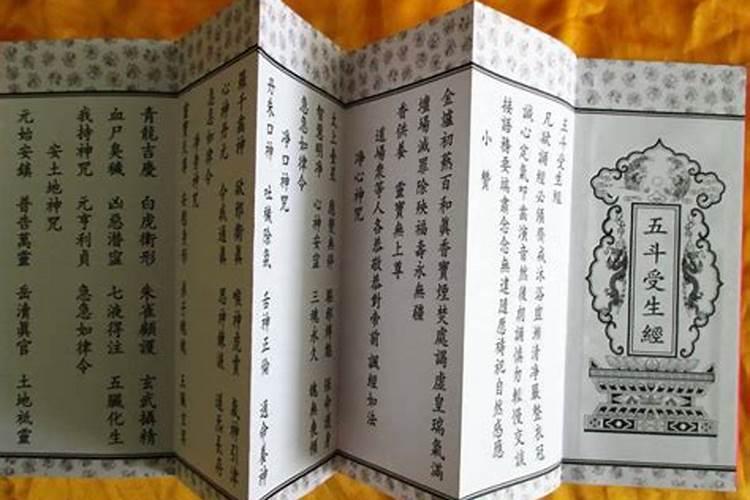 五斗受生經
五斗受生經
凡欲誦經必須齋戒沐浴盥漱清淨嚴整衣冠
誠心定氣叩齒演音然後朗誦慎勿輕慢交談
接語務要端肅念念無違隨應禱祀自然感應
小贊
金爐初爇百和真香寶煙焚處謁虛皇瑞氣滿
壇場滅罪除殃福壽永無疆
香供養 靈寶無上尊
道場眾等人各恭敬恭對帝前 誦經如法
淨心神咒
太上台星 應變無停
智慧明淨 心神安寧 三魂永久 魄無喪傾
急急如律令
淨口神咒
丹朱口神 吐穢除氛 舌神正倫 通命養神
羅千齒神 却邪衛真 喉神虎賁 氣神引津
心神丹元 令我通真 思神鍊液 道炁長存
急急如律令
淨身神咒
青龍吉慶 白虎衛形 朱雀顧護 玄武攝精
血尸臭穢 凶惡潛窪 七液得注 五臟化生
我持神咒 元亨利貞 急急如律令
安土地神咒
元始安鎮 普告萬靈 岳瀆真官 土地祗靈